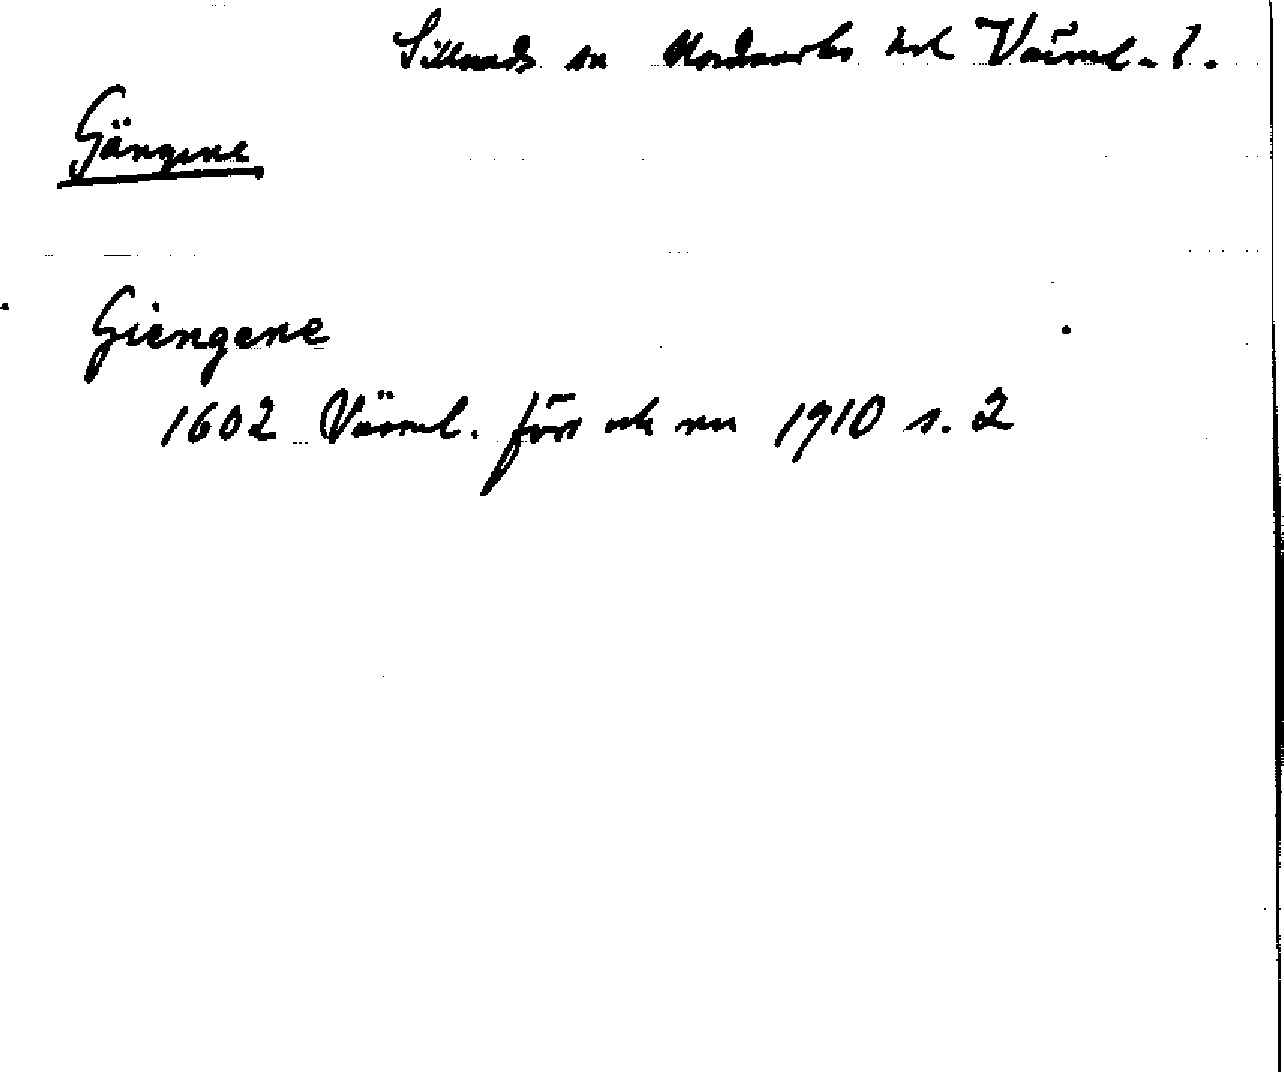 Silleruds sn Nordmarks hd Värml. l.
Gängene
Giengene
1602 Värml. förr och nu 1910 s. 2